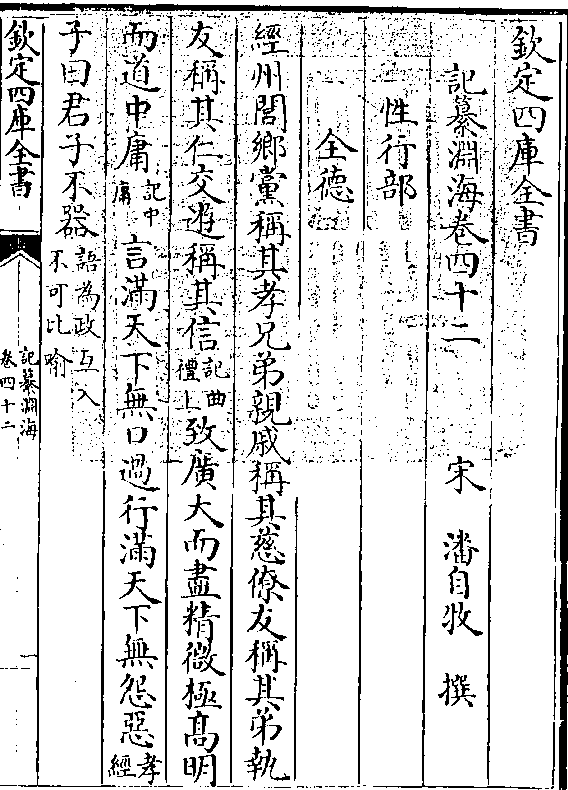 欽定四庫全書
記纂淵海卷四十二　宋　潘自牧　撰
性行部
全德
經州閭鄉黨稱其孝兄弟親戚稱其慈僚友稱其弟執
友稱其仁交遊稱其信記曲禮上致廣大而盡精微極髙明
而道中庸記中庸言滿天下無口過行滿天下無怨惡孝經
子曰君子不器語為政互入不可比喻
欽定四庫全書
記纂淵海
卷四十二